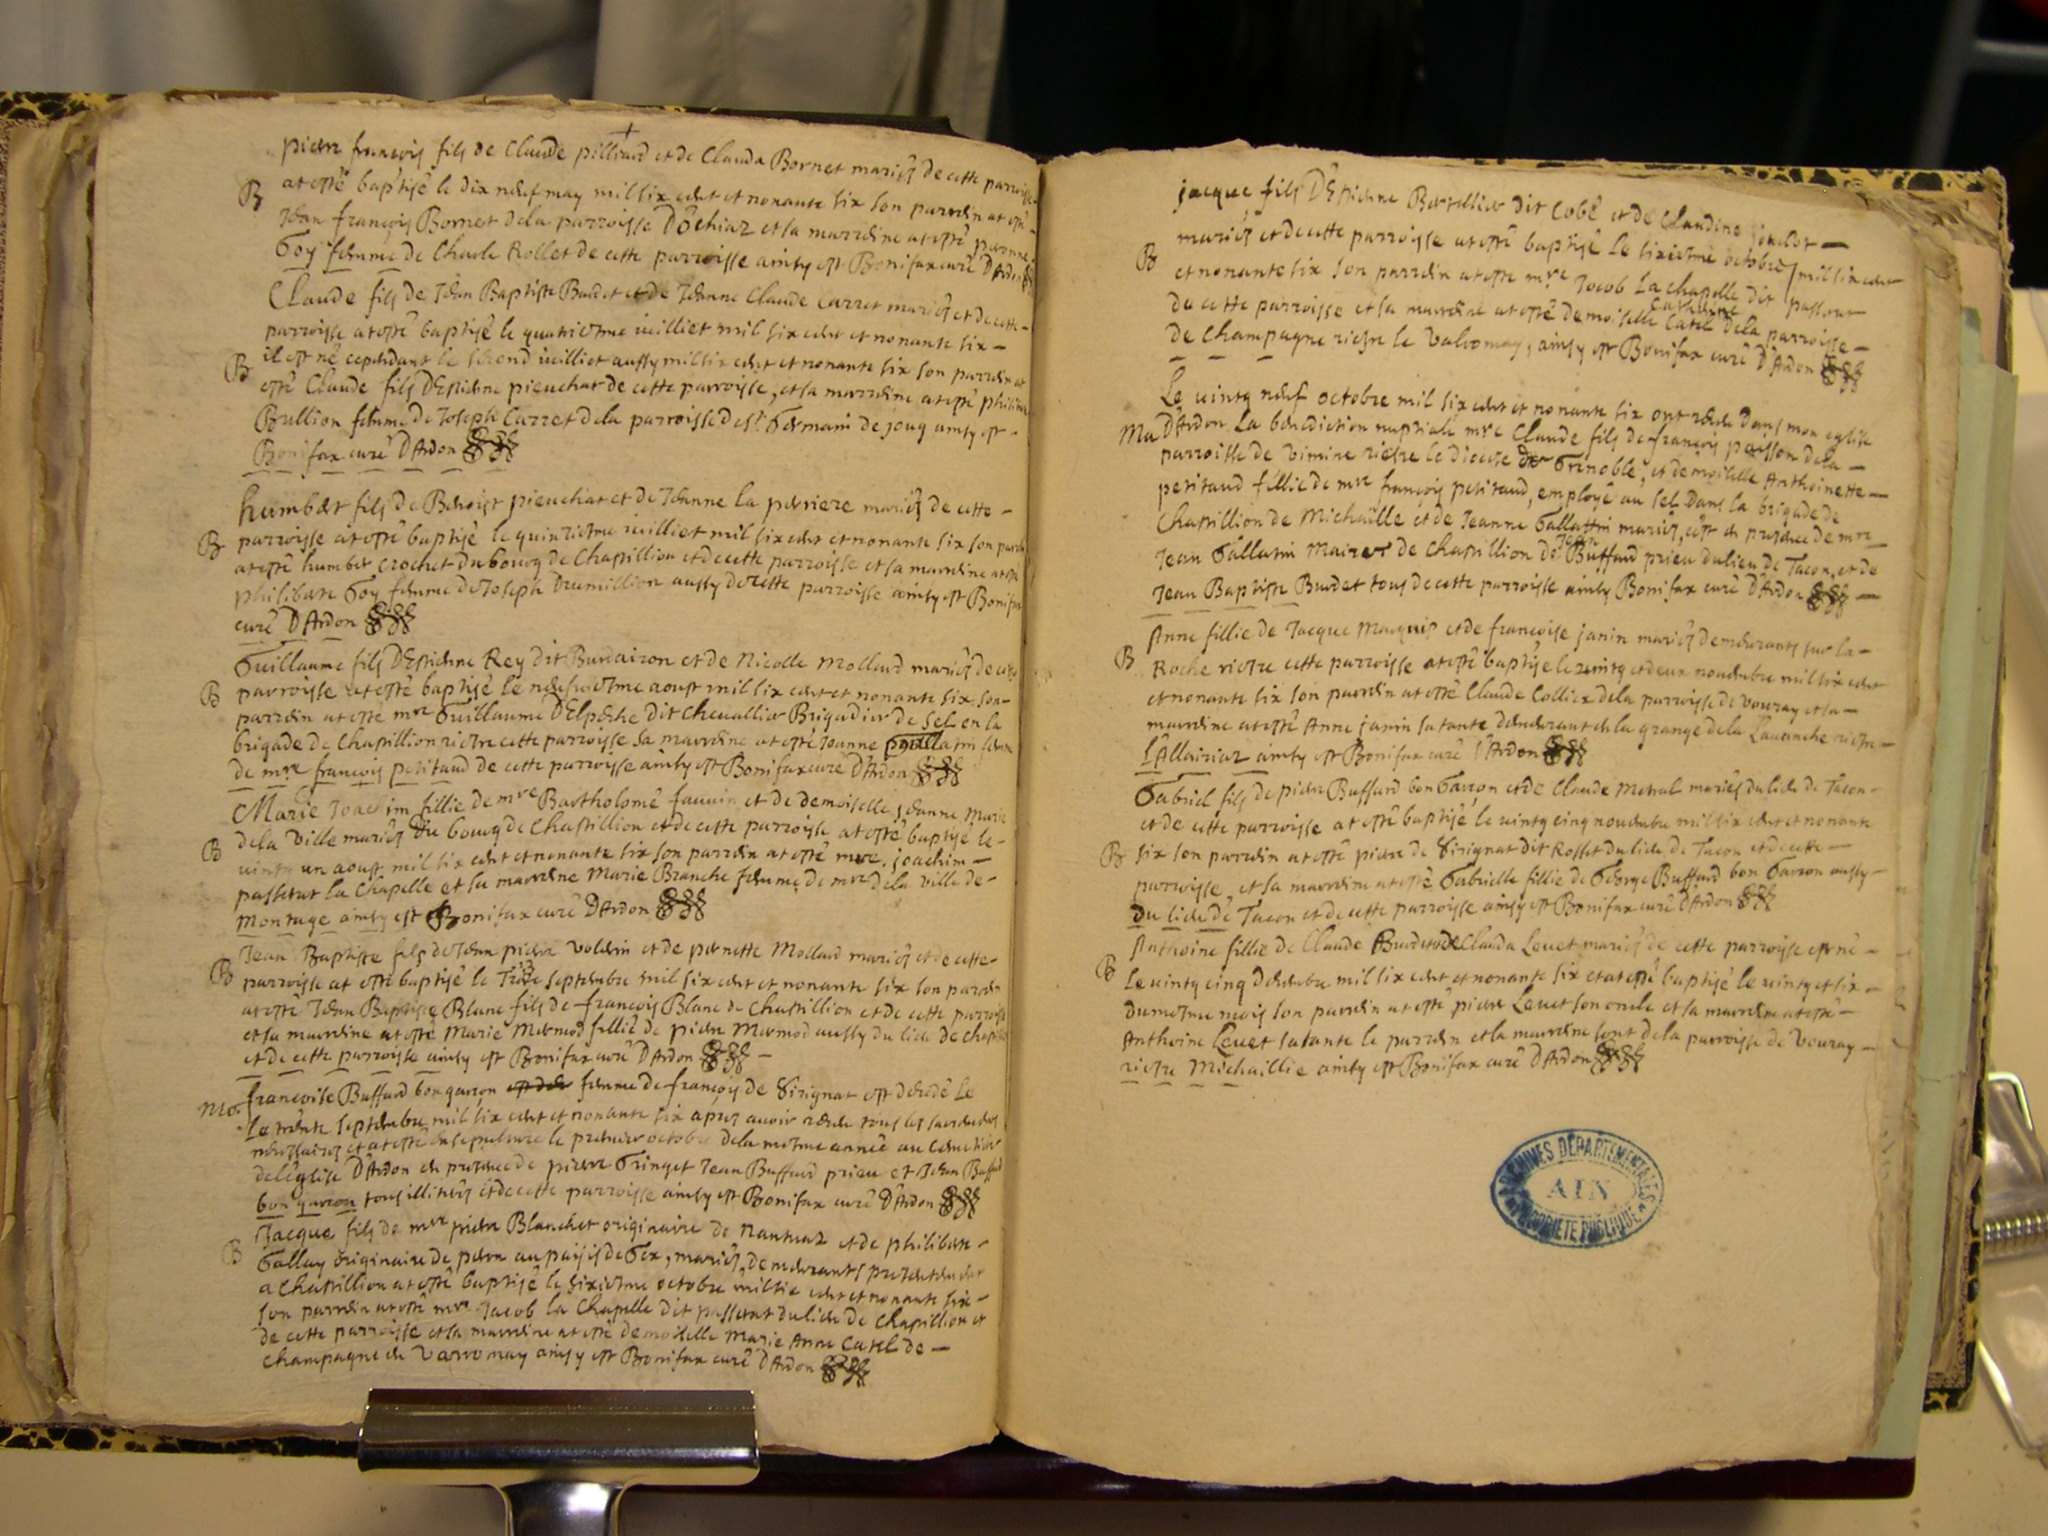 pierre françois fils de Claude pilliard et de Clauda Bornet mariés de cette parroisse
B at esté baptisé le dix neuf may mil six cent et nonante six son parrein at esté
Jean françois Bornet de la parroisse D'ochiaz et sa marreine at esté pernne
Goy femme de Charle Rollet de cette parroisse ainsy est Bonifax curé D'Ardon
Claude fils de Jean Baptiste Burdet et de Jeanne Claude Carret mariés et de cette
parroisse at esté baptisé le quatriesme iuilliet mil six cent et nonante six
B il est né cependant le second iuilliet aussy mil six cent et nonante six son parrein at
esté Claude fils D'Estienne pieuchat de cette parroisse, et sa marreine at esté philiberte
Brullion femme de Joseph Carret de la parroisse de st Germain de joug ainsy est
Bonifax curé D'Ardon
humbert fils de Benoist pieuchat et de Jeanne la perriere mariés de cette
B parroisse at esté baptisé le quinziesme iuilliet mil six cent et nonante six son parrein
at esté humbert crochet du bourg de Chastillion et de cette parroisse et sa marreine at esté
philiberte Goy femme de Joseph Drumillion aussy de cette parroisse ainsy est Bonifax
curé D'Ardon
Guillaume fils D'Estienne Rey dit Burdairon et de Nicolle Mollard mariés de cette
B parroisse at esté baptisé le neufviesme aoust mil six cent et nonante six son
parrein at esté mre Guillaume D'Elpeche dit Chevallier Brigadier de Sel en la
brigade de Chastillion riesre cette parroisse sa marreine at esté Jeanne Gallatin femme
de mre françois petitaud de cette parroisse ainsy est Bonifax curé D'Ardon
Marie Joachim fillie de mre Bartholomé fauuin et de demoiselle Jeanne Marie
de la Ville mariés du bourg de Chastillion et de cette parroisse at esté baptisé le
B vinty un aoust mil six cent et nonante six son parrein at esté mre joachim
passerat la Chapelle et sa marreine Marie Branche femme de mre de la Ville de
Montage ainsy est Bonifax curé D'Ardon
Jean Baptiste fils de Jean pierre Volerin et de pernette Mollard mariés et de cette
B parroisse at esté baptisé le Treize septembre mil six cent et nonante six son parrein
at esté Jean Baptiste Blanc fils de françois Blanc de Chastillion et de cette parroisse
et sa marreine at esté Marie Mermod fillie de pierre Mermod aussy du lieu de Chastillion
et de cette parroisse ainsy est Bonifax curé D'Ardon
Mo. francoise Buffard bon garçon femme de françois de Sirignat est decedé Le
Le trente septembre mil six cent et nonante six apres auoir receu tous les sacrements
necessaires et at esté ensepulture le premier octobre de la mesme année au cemetiere
de l'église D'Ardon en presence de pierre Gringet Jean Buffard prieu et Jean Buffard
bon garcon tous illiterés et de cette parroisse ainsy est Bonifax curé D'Ardon
Jacque fils de mre pierre Blanchet originaire de Nantuaz et de philiberte
B Gallay originaire de peron au païis de Gex, mariés, demeurants presentement
a Chastillion at esté baptisé le sixiesme octobre mil six cent et nonante six
son parrein at esté mre Jacob la Chapelle dit passerat du lieu de Chastillion et
de cette parroisse et sa marreine at esté demoiselle Marie Anne Catel de
Champagne en Varromay ainsy est Bonifax curé D'Ardon
jacque fils D'Estienne Bertellier dit Cobé et de Claudine
mariés et de cette parroisse at esté baptisé le sixiesme octobre mil six cent
B et nonante six son parrein at esté mre Jacob La chapelle dit passerat
de cette parroisse et sa marreine at esté demoiselle Catherine Catel de la parroisse
de Champagne riesre le Valromay, ainsy est Bonifax curé D'Ardon
Le vinty neuf octobre mil six cent et nonante six ont receu dans mon eglise
Ma D'Ardon La benediction nuptiale mre Claude fils de françois paisson de la
parroisse de vimine riesre le diocese de Grenoble, et demoiselle Anthoinette
petitaud fillie de mre françois petitaud, employé au sel dans la brigade de
Chastillion de Michaille et de Jeanne Gallattin mariés, est en presence de mre
Jean Gallatin Mairet de Chastillion de Jean Buffard prieu du lieu de Tacon, et de
Jean Baptiste Burdet tous de cette parroisse ainsy Bonifax curé D'Ardon
Anne fillie de Jacque Marquis et de francoise janin mariés demeurants sur la
B Roche riesre cette parroisse at esté baptisé le vinty et deux nouembre mil six cent
et nonante six son parrein at esté Claude Colliex de la parroisse de Vouray et sa
marreine at esté Anne janin sa tante demeurant en la grange de la Lauanche riesre
L'Allairiaz ainsy est Bonifax curé D'Ardon
Gabriel fils de pierre Buffard bon Garçon et de Claude Metral mariés du lieu de Tacon
et de cette parroisse at esté baptisé le vinty cinq nouembre mil six cent et nonante
B six son parrein at esté pierre de Sirignat dit Rosset du lieu de Tacon et de cette
parroisse, et sa marreine at esté Gabrielle fillie de George Buffard bon Garcon aussy
du lieu de Tacon et de cette parroisse ainsy est Bonifax curé D'Ardon
Anthoine fillie de Claude Burdet et de Clauda Leuet mariés de cette parroisse est né
B Le vinty cinq decembre mil six cent et nonante six et at esté baptisé le vinty et six
du mesme mois son parrein at esté pierre Leuet son oncle et sa marreine at esté
Anthoine Leuet sa tante le parrein et la marreine sont de la parroisse de Vouray
riesre Michaillie ainsy est Bonifax curé D'Ardon
ARCHIVES DÉPARTEMENTALES
AIN
PROPRIÉTÉ PUBLIQUE